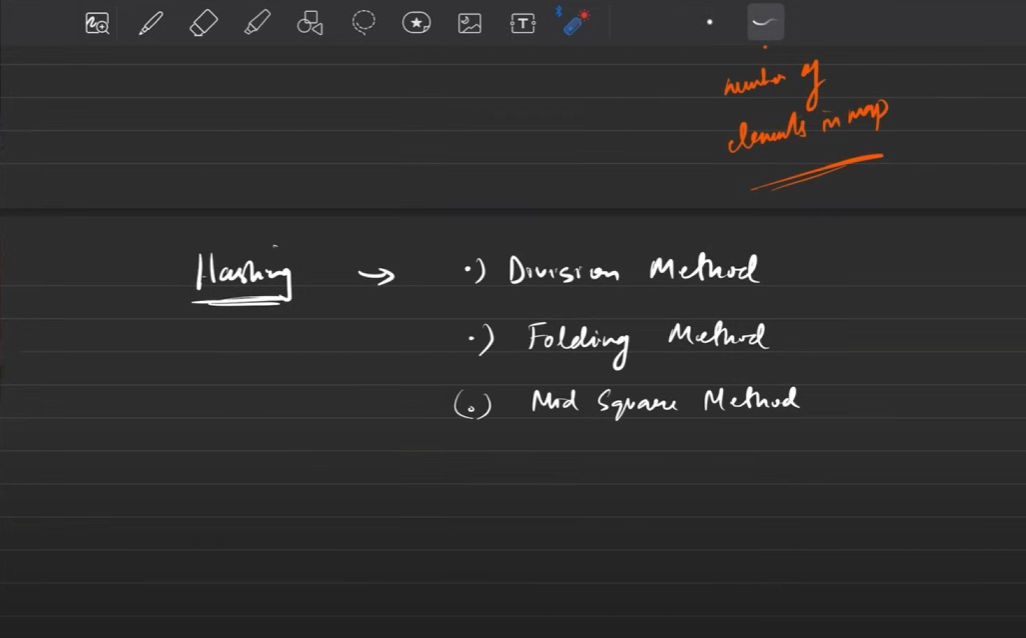 number of
elements in map
Hashing → •) Division Method
•) Folding Method
(•) Mid Square Method